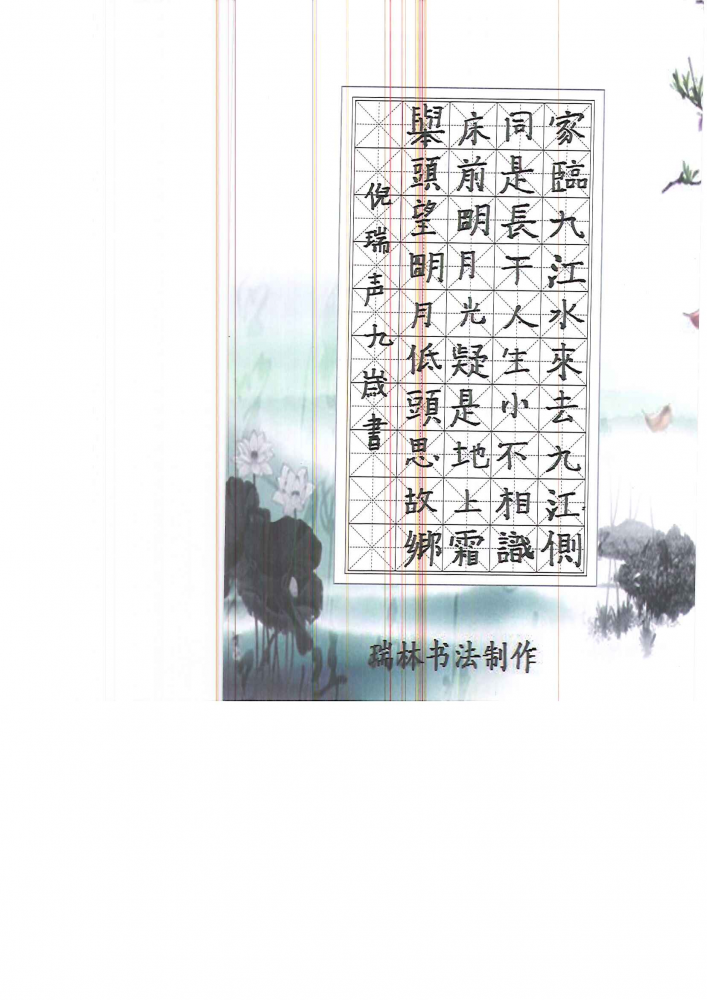 家臨九江水來去九江側
同是長干人生小不相識
床前明月光疑是地上霜
舉頭望明月低頭思故鄉
倪瑞声九歲書
瑞林书法制作